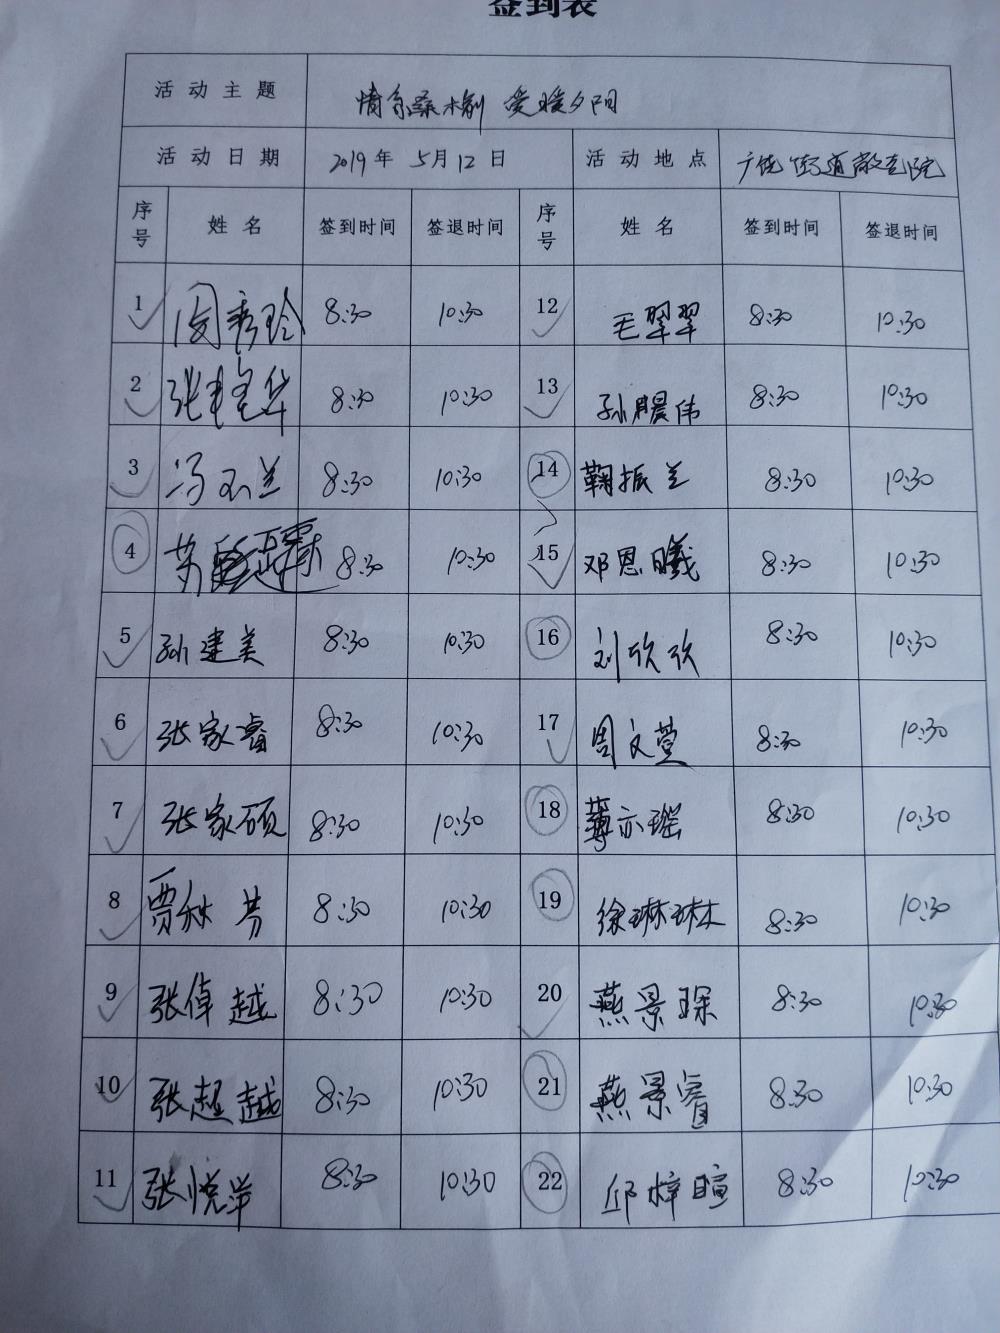 签到表
活动主题 情系桑榆 爱暖夕阳
活动日期 2019年 5月12日 活动地点 广饶街道敬老院
序号 姓名 签到时间 签退时间 序号 姓名 签到时间 签退时间
1 周秀玲 8:30 10:30 12 毛翠翠 8:30 10:30
2 张 华 8:30 10:30 13 孙晨伟 8:30 10:30
3 冯玉兰 8:30 10:30 14 鞠振兰 8:30 10:30
4 8:30 10:30 15 邓恩曦 8:30 10:30
5 孙建美 8:30 10:30 16 刘欣欣 8:30 10:30
6 张家睿 8:30 10:30 17 周文萱 8:30 10:30
7 张家硕 8:30 10:30 18 薄亦瑶 8:30 10:30
8 贾秋芳 8:30 10:30 19 徐琳琳 8:30 10:30
9 张倬越 8:30 10:30 20 燕景琛 8:30 10:30
10 张超越 8:30 10:30 21 燕景睿 8:30 10:30
11 张悦洋 8:30 10:30 22 邱梓暄 8:30 10:30